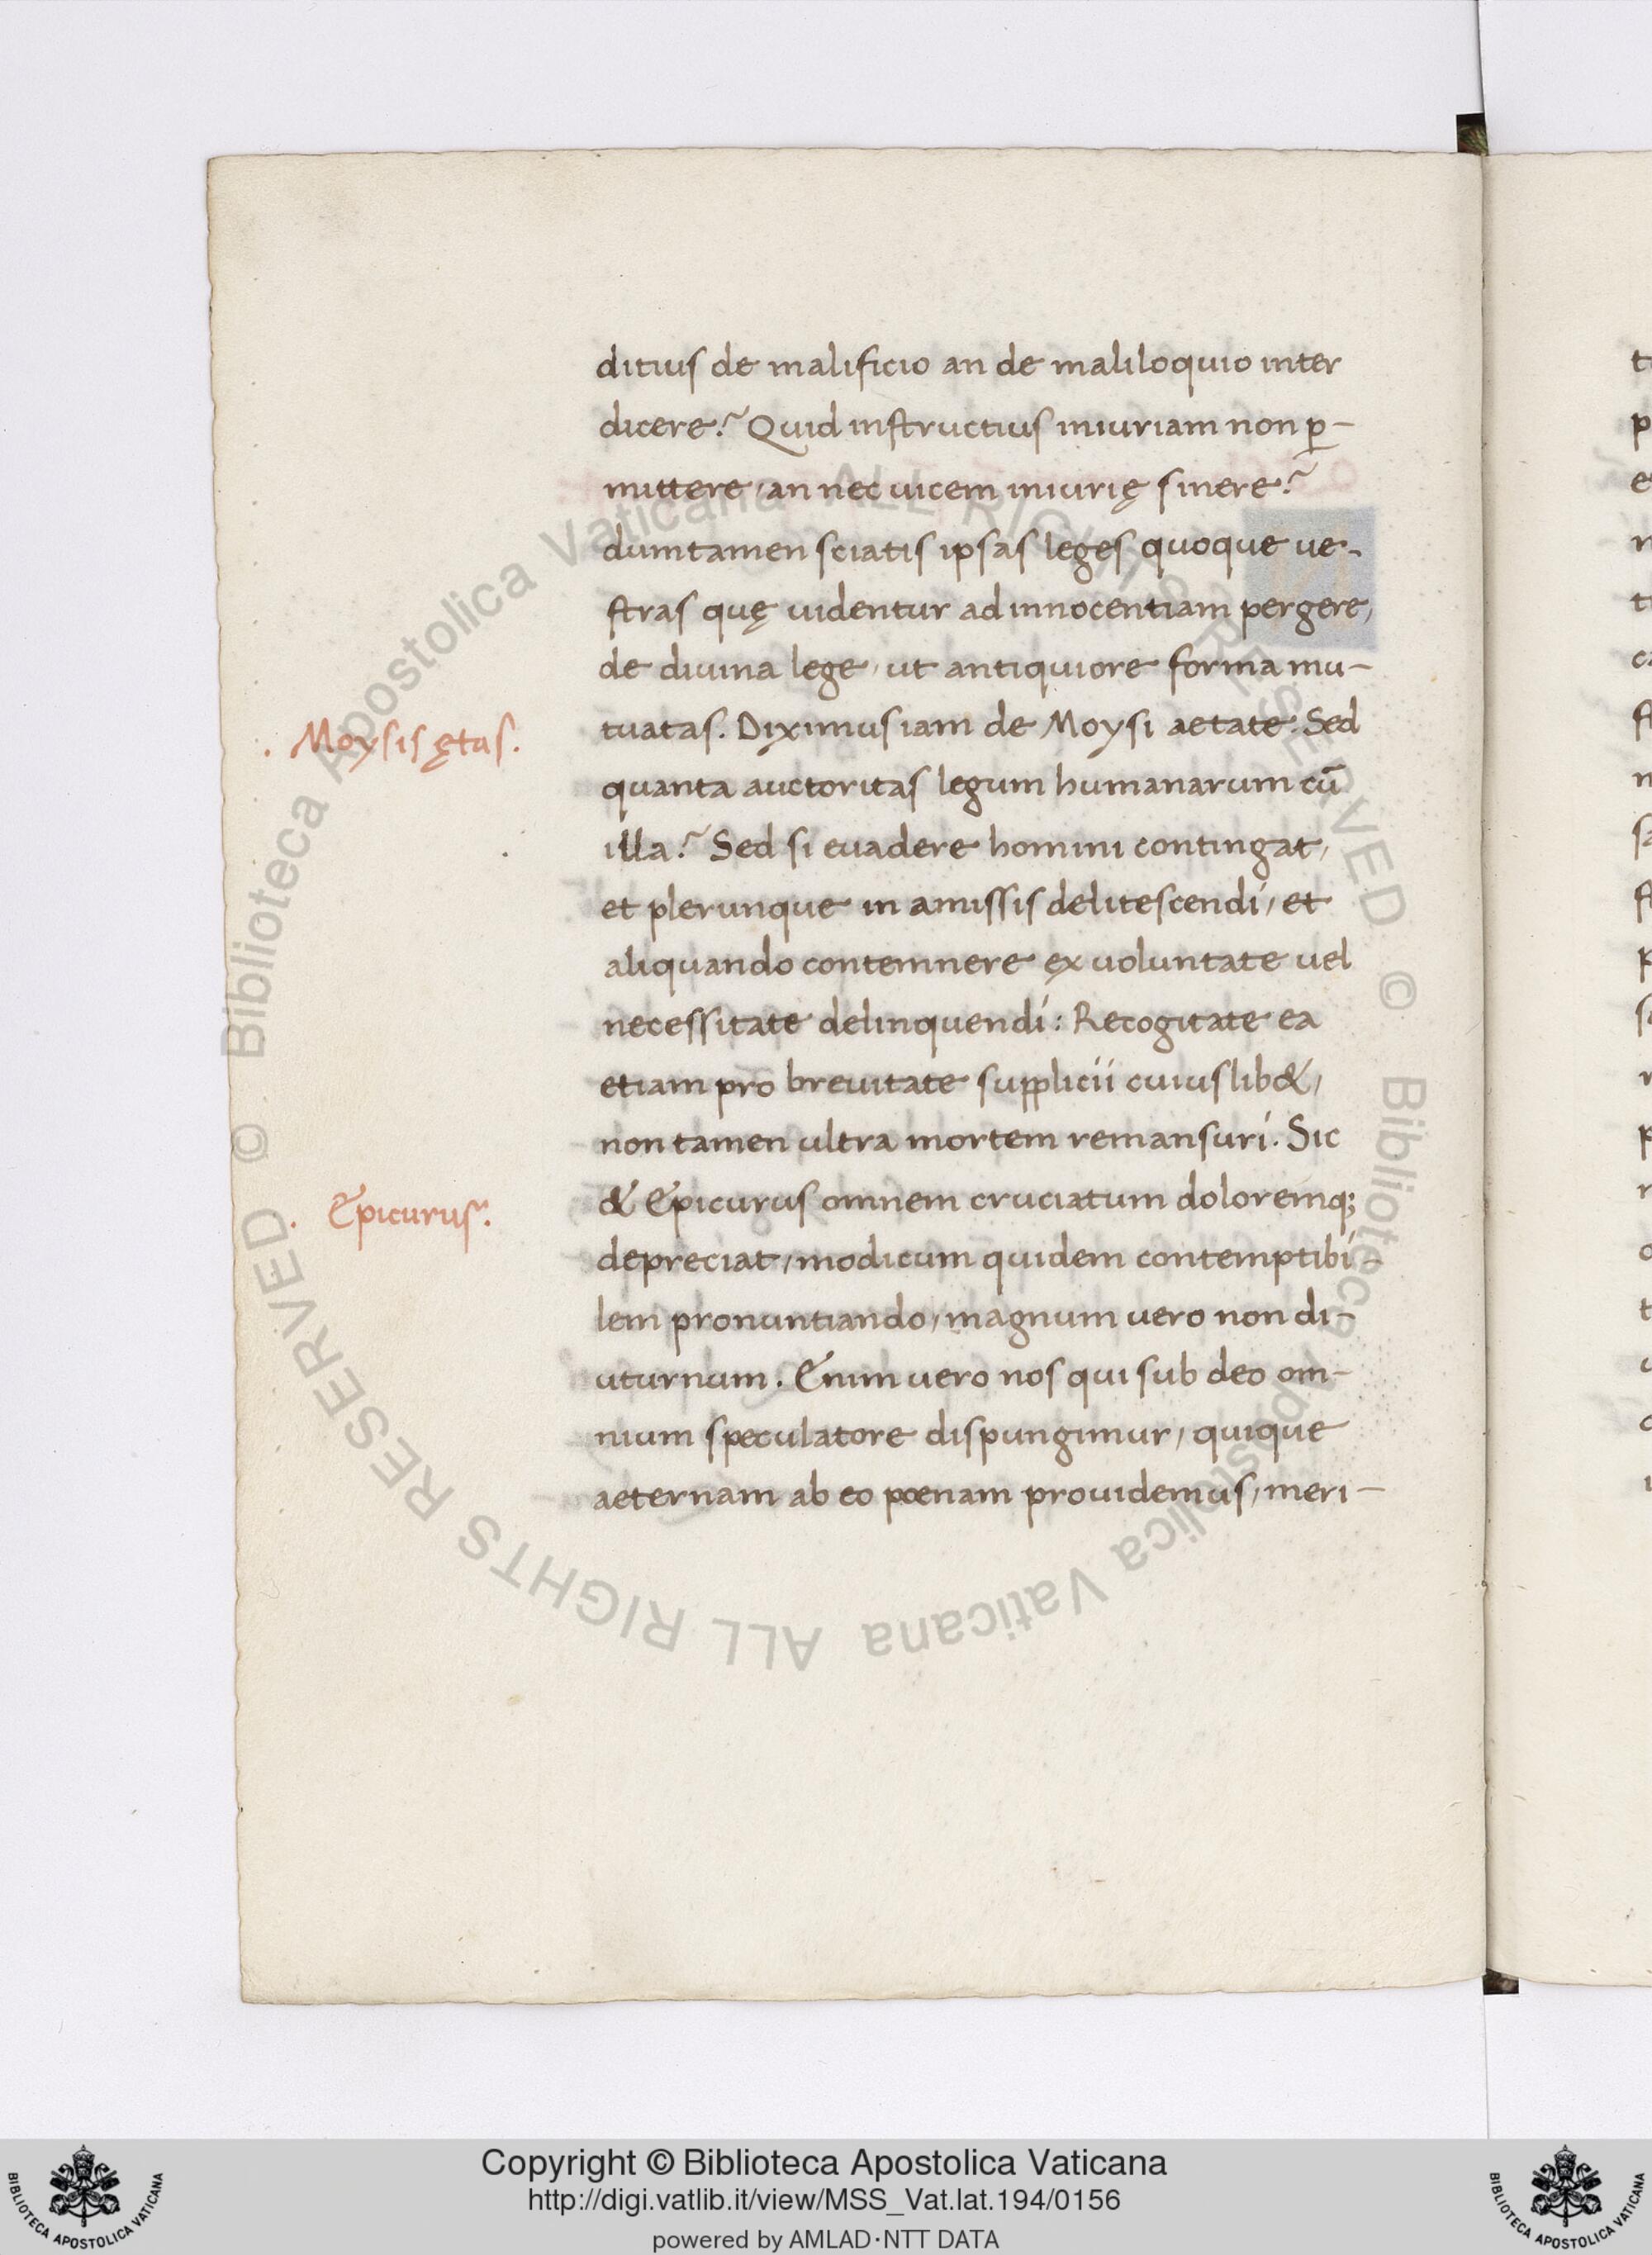 ditius de malificio an de maliloquio inter
dicere? Quid instructius iniuriam non p̱-
mittere, an nec uicem iniurię sinere?
dumtamen sciatis ipsas leges quoque ue-
stras quę uidentur ad innocentiam pergere,
de diuina lege, ut antiquiore forma mu-
. Moysis ętas.
tuatas. Diximus iam de Moysi aetate. Sed
quanta auctoritas legum humanarum cū
illa? Sed si euadere homini contingat,
et plerunque in amissis delitescendi, et
aliquando contemnere ex uoluntate uel
necessitate delinquendi: Recogitate ea
etiam pro breuitate supplicii cuiuslib&,
non tamen ultra mortem remansuri. Sic
. Epicurus.
& Epicurus omnem cruciatum doloremq;
depreciat, modicum quidem contemptibi-
lem pronuntiando, magnum vero non di-
uturnum. Enim uero nos qui sub deo om-
nium speculatore dispungimur, quique
aeternam ab eo poenam prouidemus, meri-
© Biblioteca Apostolica Vaticana ALL RIGHTS RESERVED © Biblioteca Apostolica Vaticana ALL RIGHTS RESERVED
Copyright © Biblioteca Apostolica Vaticana
http://digi.vatlib.it/view/MSS_Vat.lat.194/0156
powered by AMLAD·NTT DATA
BIBLIOTECA APOSTOLICA VATICANA
BIBLIOTECA APOSTOLICA VATICANA